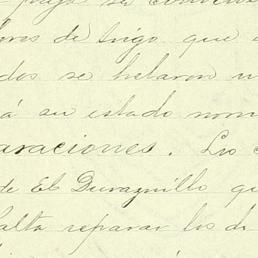 pago su
ores de trigo que
dos se helaron
á su estado nor
araciones. Los
de El Duraznillo qu
falta reparar los d